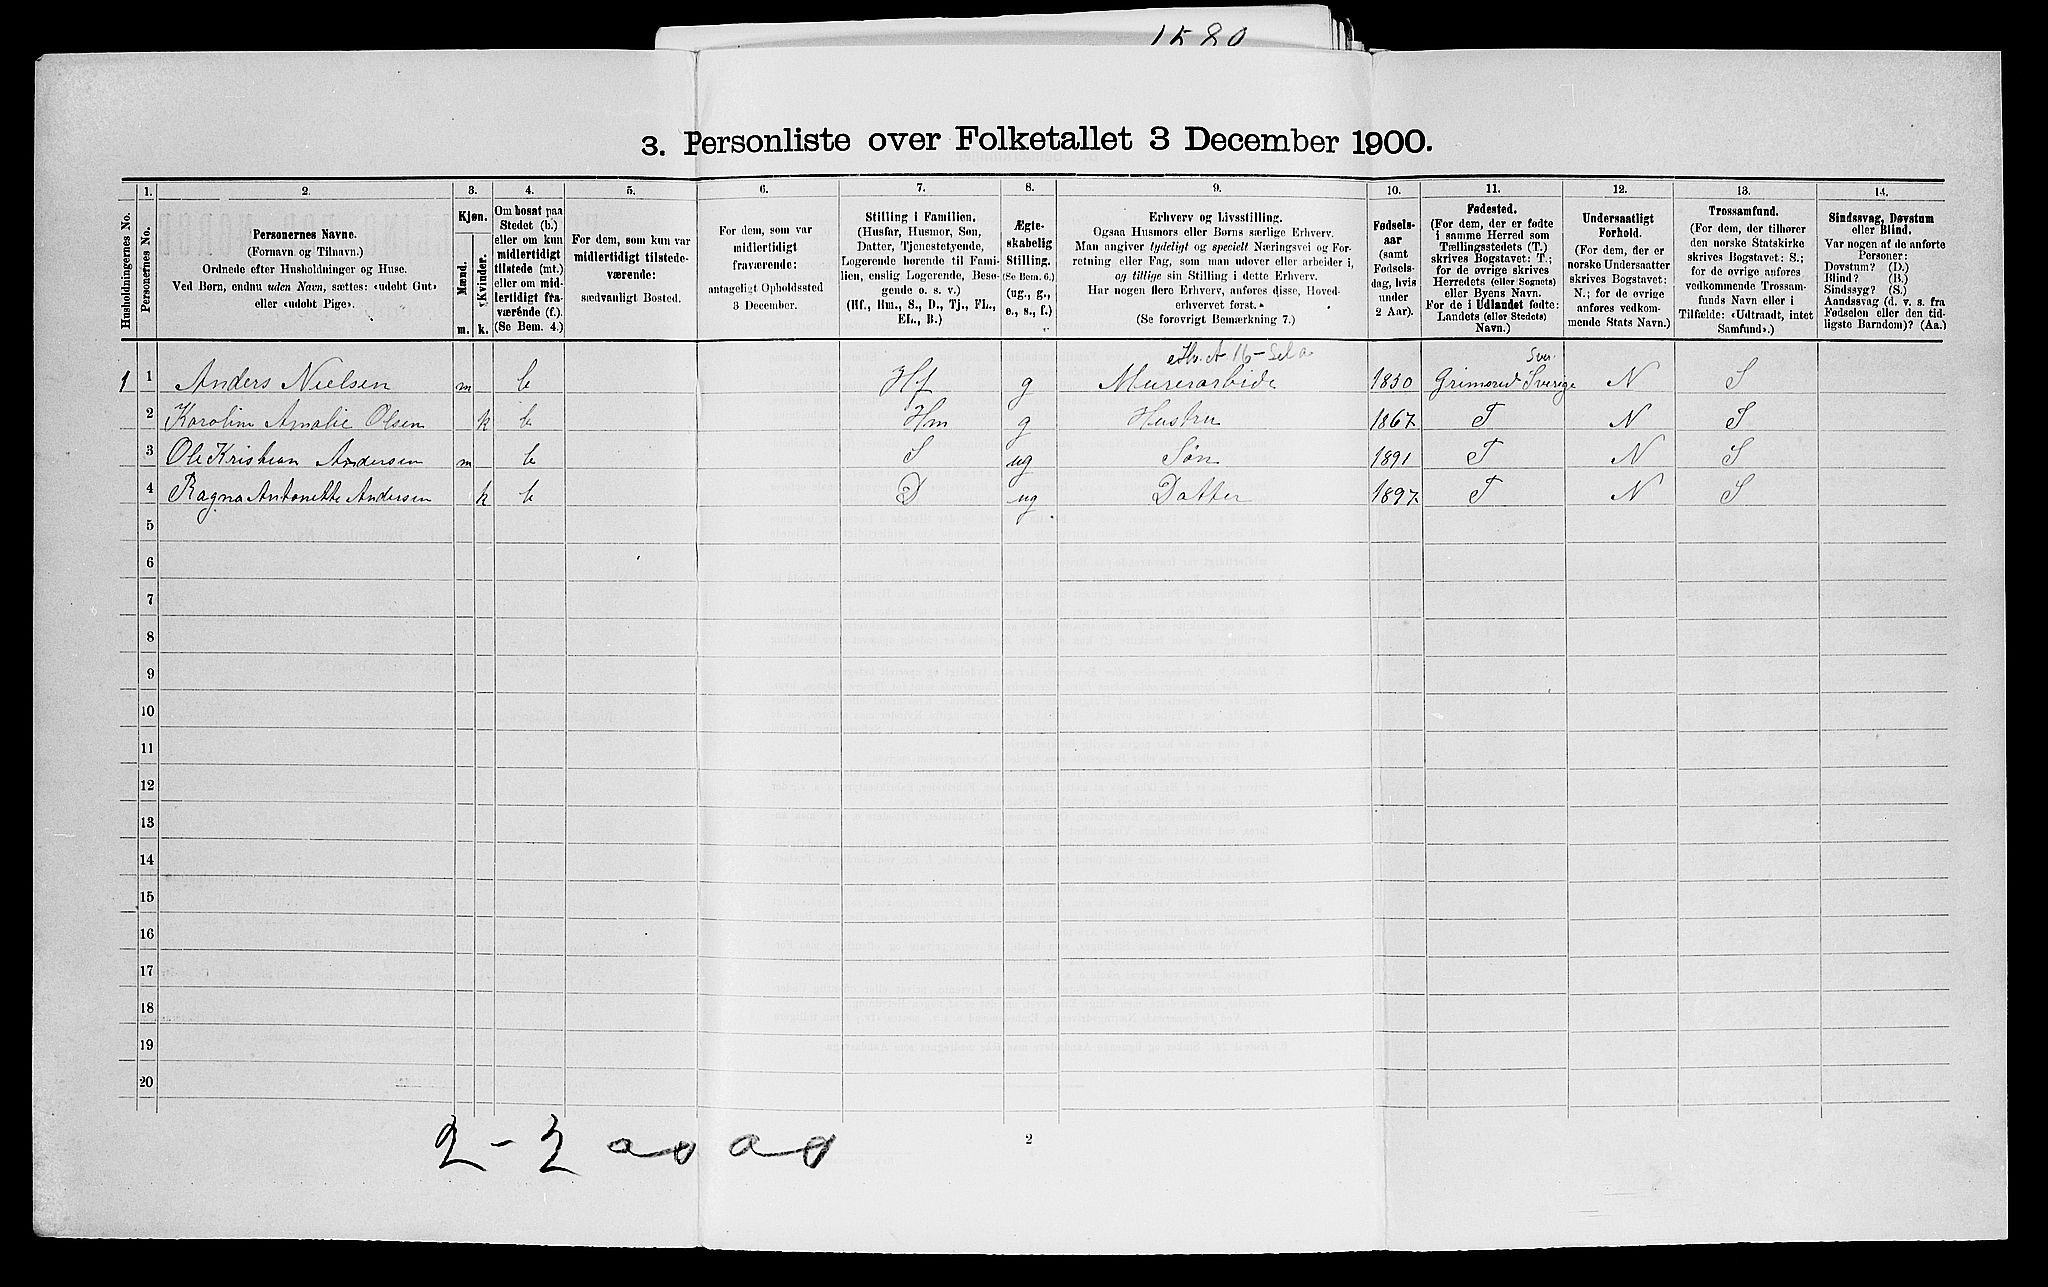 1580
3. Personliste over Folketallet 3 December 1900.
Husholdningernes No.
1.
Personernes No.
2.
Personernes Navne.
(Fornavn og Tilnavn.)
Ordnede efter Husholdninger og Huse.
Ved Børn, endnu uden Navn, sættes: «udøbt Gut»
eller «udøbt Pige».
3.
Kjøn.
Mænd.
Kvinder.
m.
k.
4.
Om bosat paa
Stedet (b.)
eller om kun
midlertidigt
tilstede (mt.)
eller om mid-
lertidigt fra-
værende (f.).
(Se Bem. 4.)
5.
For dem, som kun var
midlertidigt tilstede-
værende:
sædvanligt Bosted.
6.
For dem, som var
midlertidigt
fraværende:
antageligt Opholdssted
3 December.
7.
Stilling i Familien.
(Husfar, Husmor, Søn,
Datter, Tjenestetyende,
Logerende hørende til Fami-
lien, enslig Logerende, Besø-
gende o. s. v.)
(Hf., Hm., S., D., Tj., FL.,
EL., B.)
8.
Ægte-
skabelig
Stilling.
(Se Bem. 6.)
(ug., g.,
e., s., f.)
9.
Erhverv og Livsstilling.
Ogsaa Husmors eller Børns særlige Erhverv.
Man angiver tydeligt og specielt Næringsvei og For-
retning eller Fag, som man udøver eller arbeider i,
og tillige sin Stilling i dette Erhverv.
Har nogen flere Erhverv, anføres disse, Hoved-
erhvervet først.
(Se forøvrigt Bemærkning 7.)
10.
Fødsels-
aar
(samt
Fødsels-
dag, hvis
under
2 Aar).
11.
Fødested.
(For dem, der er fødte
i samme Herred som
Tællingsstedets (T.)
skrives Bogstavet: T.;
for de øvrige skrives
Herredets (eller Sognets)
eller Byens Navn.
For de i Udlandet fødte:
Landets (eller Stedets)
Navn.)
12.
Undersaatligt
Forhold.
(For dem, der er
norske Undersaatter
skrives Bogstavet:
N.; for de øvrige
anføres vedkom-
mende Stats Navn.)
13.
Trossamfund.
(For dem, der tilhører
den norske Statskirke
skrives Bogstavet: S.;
for de øvrige anføres
vedkommende Trossam-
funds Navn eller i
Tilfælde: «Udtraadt, intet
Samfund».)
14.
Sindssvag, Døvstum
eller Blind.
Var nogen af de anførte
Personer:
Døvstum? (D.)
Blind? (B.)
Sindssyg? (S.)
Aandssvag (d. v. s. fra
Fødselen eller den tid-
ligste Barndom)? (Aa.)
1 1 Anders Nielsen m b Hf g Murerarbide 1830 Grimsrud Sverige N S
2 Karolin Amalie Olsen k b Hm g Hustru 1867 T N S
3 Ole Kristian Andersen m b S ug Søn 1891 T N S
4 Ragna Antonette Andersen k b D ug Datter 1897 T N S
5
6
7
8
9
10
11
12
13
14
15
16
17
18
19
20
2 - 2
2